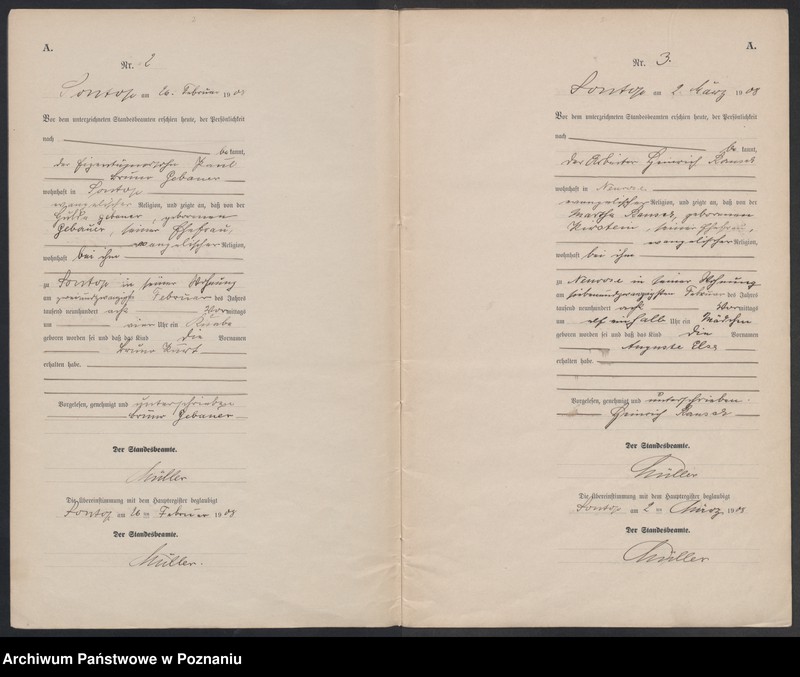 A.
Nr. 2
Sontop am 26. Februar 1908
Vor dem unterzeichneten Standesbeamten erschien heute, der Persönlichkeit
nach
be kannt,
der Eigentümersohn Paul
Bruno Gebauer
wohnhaft in Sontop
evangelischer Religion, und zeigte an, daß von der
Gebauer, geborenen
Gebauer, seiner Ehefrau,
evangelischer Religion,
wohnhaft bei ihm
zu Sontop in seiner Wohnung
am Februar des Jahres
tausend neunhundert acht Vormittags
um vier Uhr ein Knabe
geboren worden sei und daß das Kind die Vornamen
Bruno Kurt
erhalten habe.
Vorgelesen, genehmigt und unterschrieben
Bruno Gebauer
Der Standesbeamte.
Müller
Die Übereinstimmung mit dem Hauptregister beglaubigt
Sontop am 26 ten Februar 1908
Der Standesbeamte.
Müller.
A.
Nr. 3.
Sontop am 2. März 1908
Vor dem unterzeichneten Standesbeamten erschien heute, der Persönlichkeit
nach
be kannt,
der Arbeiter Heinrich
wohnhaft in Neurose
evangelischer Religion, und zeigte an, daß von der
Martha geborenen
seiner Ehefrau,
evangelischer Religion,
wohnhaft bei ihm
zu Neurose in seiner Wohnung
am siebenundzwanzigsten Februar des Jahres
tausend neunhundert acht Vormittags
um elf einhalb Uhr ein Mädchen
geboren worden sei und daß das Kind die Vornamen
Auguste Elsa
erhalten habe.
Vorgelesen, genehmigt und unterschrieben.
Heinrich
Der Standesbeamte.
Müller
Die Übereinstimmung mit dem Hauptregister beglaubigt
Sontop am 2 ten März 1908
Der Standesbeamte.
Müller
Archiwum Państwowe w Poznaniu